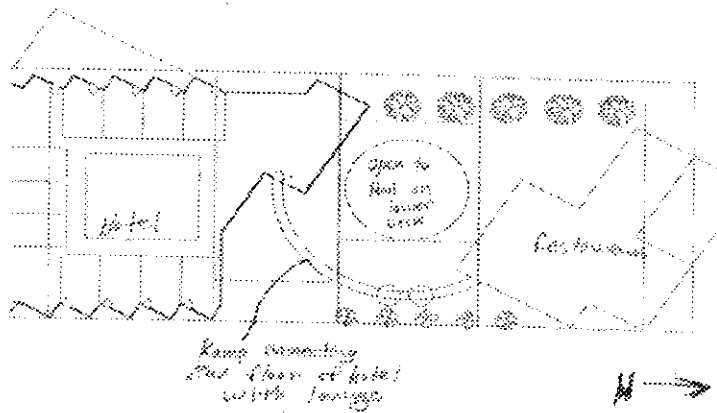 Hotel
Open to
Pool on
lower
deck
Restaurant
Ramp connecting
2nd floor of hotel
with lounge
N